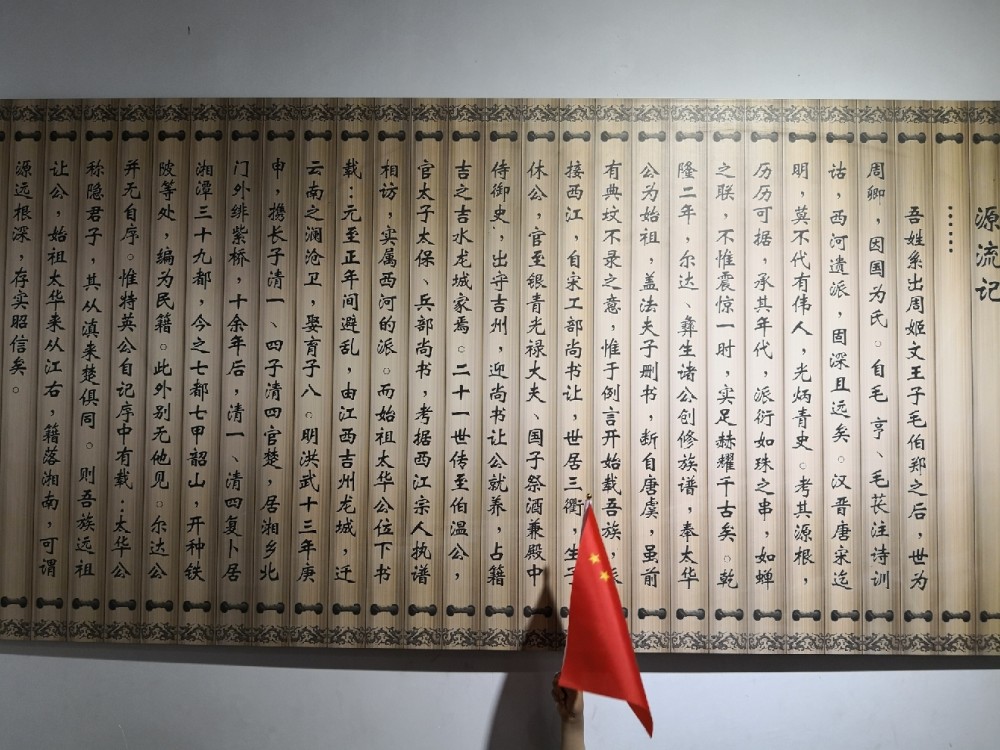 源流记
吾姓系出周姬文王子毛伯郑之后，世为
周卿，因国为氏。自毛亨、毛苌注诗训
诂，西河遗派，固深且远矣。汉晋唐宋迄
明，莫不代有伟人，光炳青史。考其源根，
历历可据，承其年代，派衍如珠之串，如蝉
之联，不惟震惊一时，实足赫耀千古矣。乾
隆二年，尔达、彝生诸公创修族谱，奉太华
公为始祖，盖法夫子删书，断自唐虞，虽前
有典坟不录之意，惟于例言开始载吾族，派
接西江，自宋工部尚书让，世居三衢，生子
休公，官至银青光禄大夫、国子祭酒兼殿中
侍御史，出守吉州，迎尚书让公就养，占籍
吉之吉水龙城家焉。二十一世传至伯温公，
官太子太保、兵部尚书，考据西江宗人执谱
相访，实属西河的派。而始祖太华公位下书
载：元至正年间避乱，由江西吉州龙城，迁
云南之澜沧卫，娶育子八。明洪武十三年庚
申，携长子清一、四子清四官楚，居湘乡北
门外绯紫桥，十余年后，清一、清四复卜居
湘潭三十九都，今之七都七甲韶山，开种铁
陂等处，编为民籍。此外别无他见。尔达公
并无自序。惟特英公自记序中有载：太华公
称隐君子，其从滇来楚俱同。则吾族远祖
让公，始祖太华来从江右，籍落湘南，可谓
源远根深，存实昭信矣。